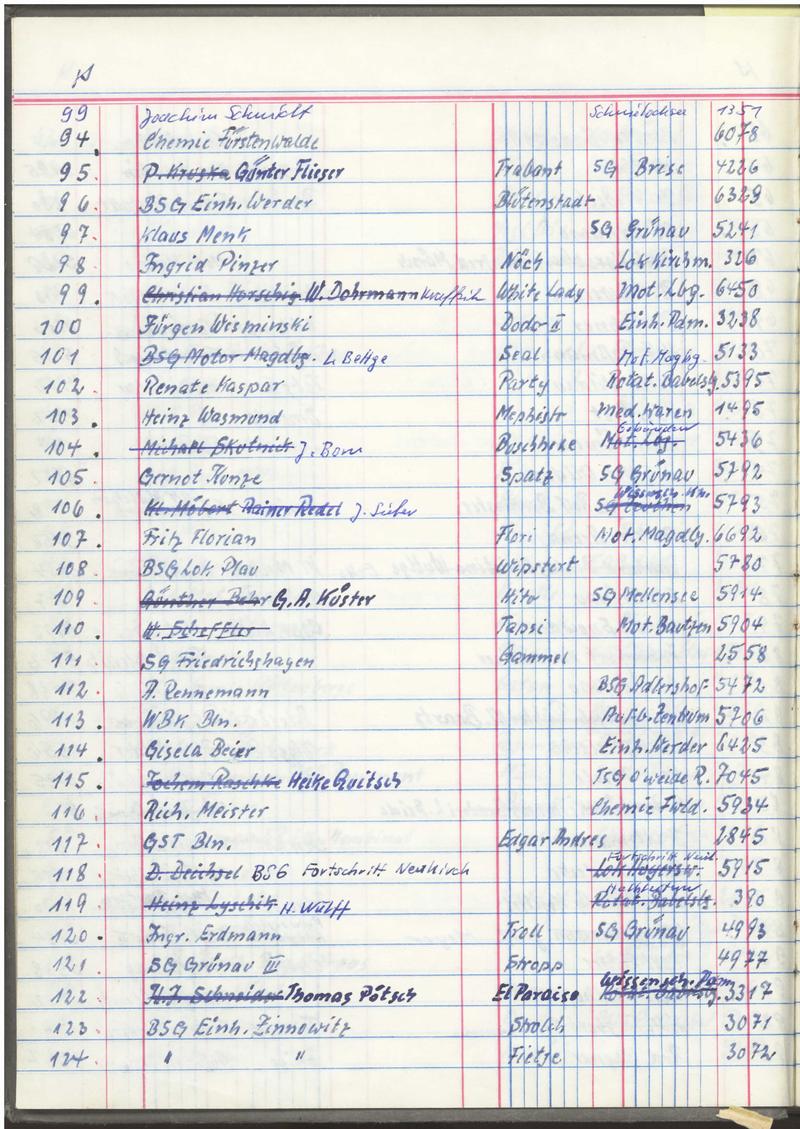 99 Joachim Schmidt 1351
94. Chemie Fürstenwalde 6078
95. P. Kruska Günter Flieger Trabant SG Brise 4226
96. BSG Einh. Werder Blütenstadt 6329
97. Klaus Menk SG Grünau 5241
98. Ingrid Pinzer Nöck Lok Kirchm. 326
99. Christian Horschig W. Dohrmann White Lady Mot. Lbg. 6450
100 Jürgen Wisminski Dodo II Einh. Pdm. 3238
101. BSG Motor Magdbg. L. Bettge Seal Mot. Magbg. 5133
102. Renate Kaspar Party Rotat. Babelsbg. 5395
103. Heinz Wasmund Mephisto med. Waren 1495
104. Michael Skotnick J. Born Buschhexe Mot. Lbg. 5436
105 Gernot Kunze Spatz SG Grünau 5792
106. Kl. Möbert Rainer Redel J. Sieber SG Wissensch. 5793
107. Fritz Florian Flori Mot. Magdbg. 6692
108. BSG Lok Plau Wipstert 5780
109 Günther Behr G. A. Küster Kito SG Mellensee 5914
110. H. Scheffler Tapsi Mot. Bautzen 5904
111. SG Friedrichshagen Gammel 2558
112. A. Rennemann BSG Adlershof 5472
113. WBK Bln. Aufb. Zentrum 5706
114. Gisela Beier Einh. Werder 6425
115. Jochem Raschke Heike Quitsch TSG O'weide R. 7045
116 Rich. Meister Chemie Fwld. 5934
117 GST Bln. Edgar Andres 2845
118 D. Deichsel BSG Fortschritt Neukirch Fortschritt Neuk. 5915
119 Heinz Lyschik H. Wulff Rotat. Babelsbg. 390
120. Ingr. Erdmann Troll SG Grünau 4993
121. SG Grünau III Stropp 4977
122. H.J. Schneider Thomas Pötsch El Paraiso Wissensch. Pdm. 3317
123. BSG Einh. Zinnowitz Strolch 3071
124. " " Fietje 3072